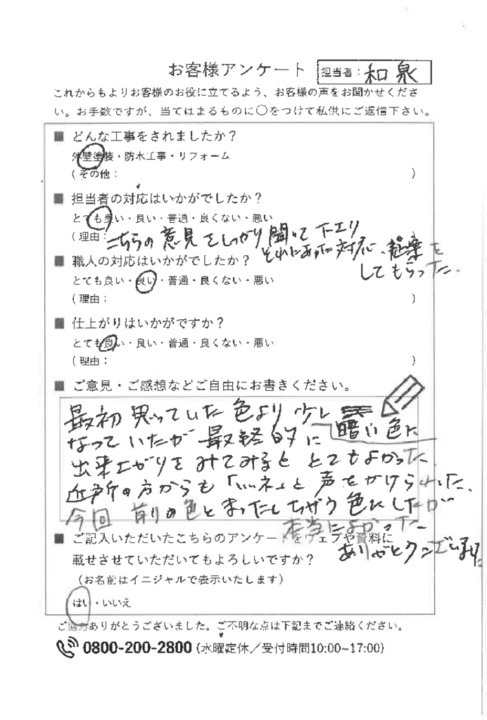 お客様アンケート
担当者: 和泉
これからもよりお客様のお役に立てるよう、お客様の声をお聞かせくださ
い。お手数ですが、当てはまるものに○をつけて私供にご返信下さい。
■ どんな工事をされましたか？
外壁塗装・防水工事・リフォーム
(その他： )
■ 担当者の対応はいかがでしたか？
とても良い・良い・普通・良くない・悪い
(理由：こちらの意見をしっかり聞いて下さり
それにあった対応、提案を
してもらった。
■ 職人の対応はいかがでしたか？
とても良い・良い・普通・良くない・悪い
(理由： )
■ 仕上がりはいかがですか？
とても良い・良い・普通・良くない・悪い
(理由： )
■ ご意見・ご感想などご自由にお書きください。
最初思っていた色より少し
暗い色に
なっていたが最終的に
出来上がりをみてみると とてもよかった。
近所の方からも「いいネ」と声をかけられた。
今回 前の色とまったくちがう色にしたが
本当によかった
ありがとうございました
■ ご記入いただいたこちらのアンケートをウェブや資料に
載せさせていただいてもよろしいですか？
(お名前はイニシャルで表示いたします)
はい・いいえ
ご協力ありがとうございました。ご不明な点は下記までご連絡ください。
0800-200-2800 (水曜定休／受付時間10:00~17:00)